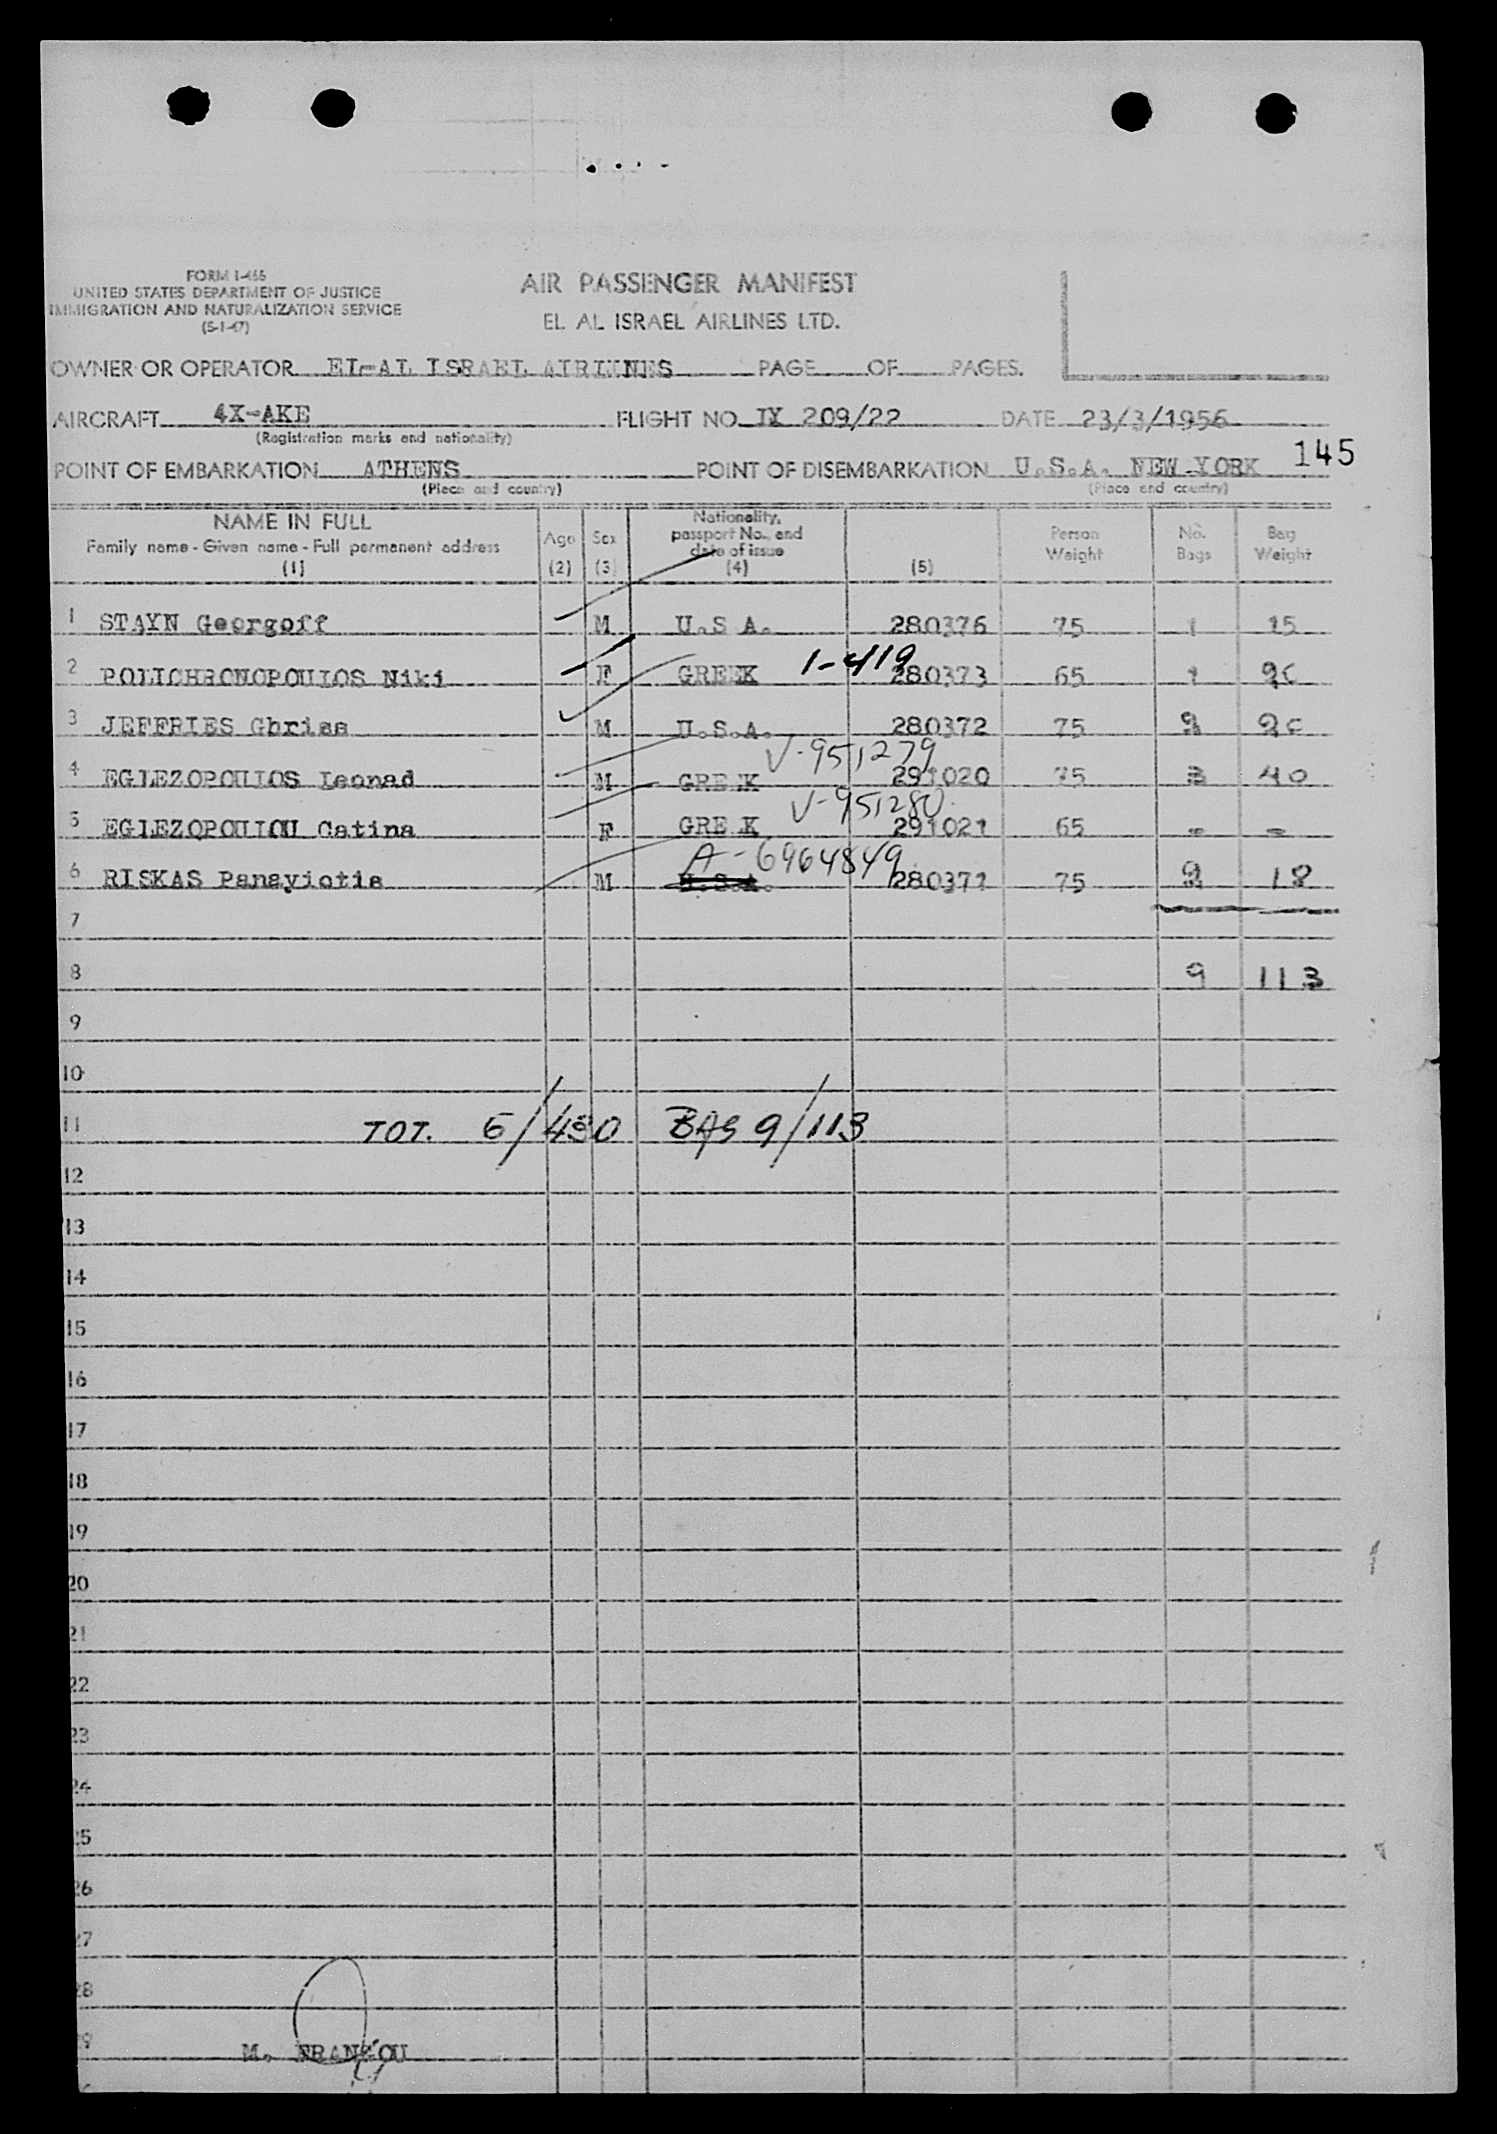 FORM I-466
UNITED STATES DEPARTMENT OF JUSTICE
IMMIGRATION AND NATURALIZATION SERVICE
(5-1-47)
AIR PASSENGER MANIFEST
EL AL ISRAEL AIRLINES LTD.
OWNER OR OPERATOR EL-AL ISRAEL AIRLINES PAGE OF PAGES.
AIRCRAFT 4X-AKE FLIGHT NO. LY 209/22 DATE 23/3/1956
(Registration marks and nationality)
145
POINT OF EMBARKATION ATHENS POINT OF DISEMBARKATION U.S.A. NEW YORK
(Place and country) (Place and country)
NAME IN FULL
Family name - Given name - Full permanent address
(1)
Age
(2)
Sex
(3)
Nationality,
passport No., and
date of issue
(4)
(5)
Person
Weight
No.
Bags
Bag
Weight
1 STAYN Georgoff M U.S.A. 280376 75 1 15
2 POLICHRONOPOULOS Niki F GREEK 1-419 280373 65 1 20
3 JEFFRIES Ghriss M U.S.A. 280372 75 2 20
V-951279
4 EGLEZOPOULOS Leonad M GREEK 291020 75 3 40
V-951280
5 EGLEZOPOULOU Catina F GREEK 291021 65 - -
A-6964849
6 RISKAS Panayiotis M U.S.A. 280371 75 2 18
7
8 9 113
9
10
11 TOT. 6/430 BAG 9/113
12
13
14
15
16
17
18
19
20
21
22
23
24
25
26
27
28
29
M. FRANKOU